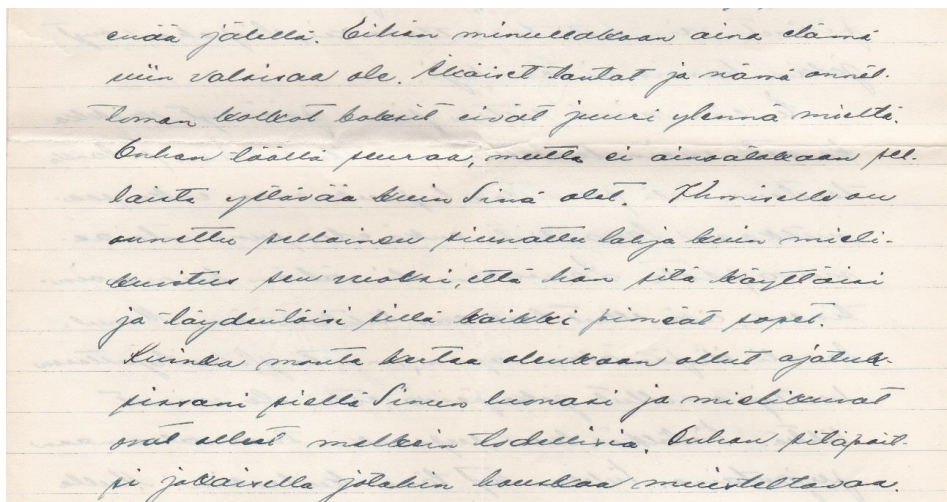 enää jälellä. Eihän minullakaan aina elämä
niin valoisaa ole. Ikäiset tantat ja nämä onnet-
toman kolkot koksit eivät juuri ylennä mieltä.
Onhan täällä seuraa, mutta ei ainoatakaan sel-
laista ystävää kuin Sinä olet. Ihmiselle on
annettu sellainen siunattu lahja kuin mieli-
kuvitus sen vuoksi, että hän sitä käyttäisi
ja täydentäisi sillä kaikki pimeät sopet.
Kuinka monta kertaa olenkaan ollut ajatuk-
sissani siellä Sinun luonasi ja mielikuvat
ovat olleet melkein todellisia. Onhan sitäpait-
si jokaisella jotakin hauskaa muisteltavaa.